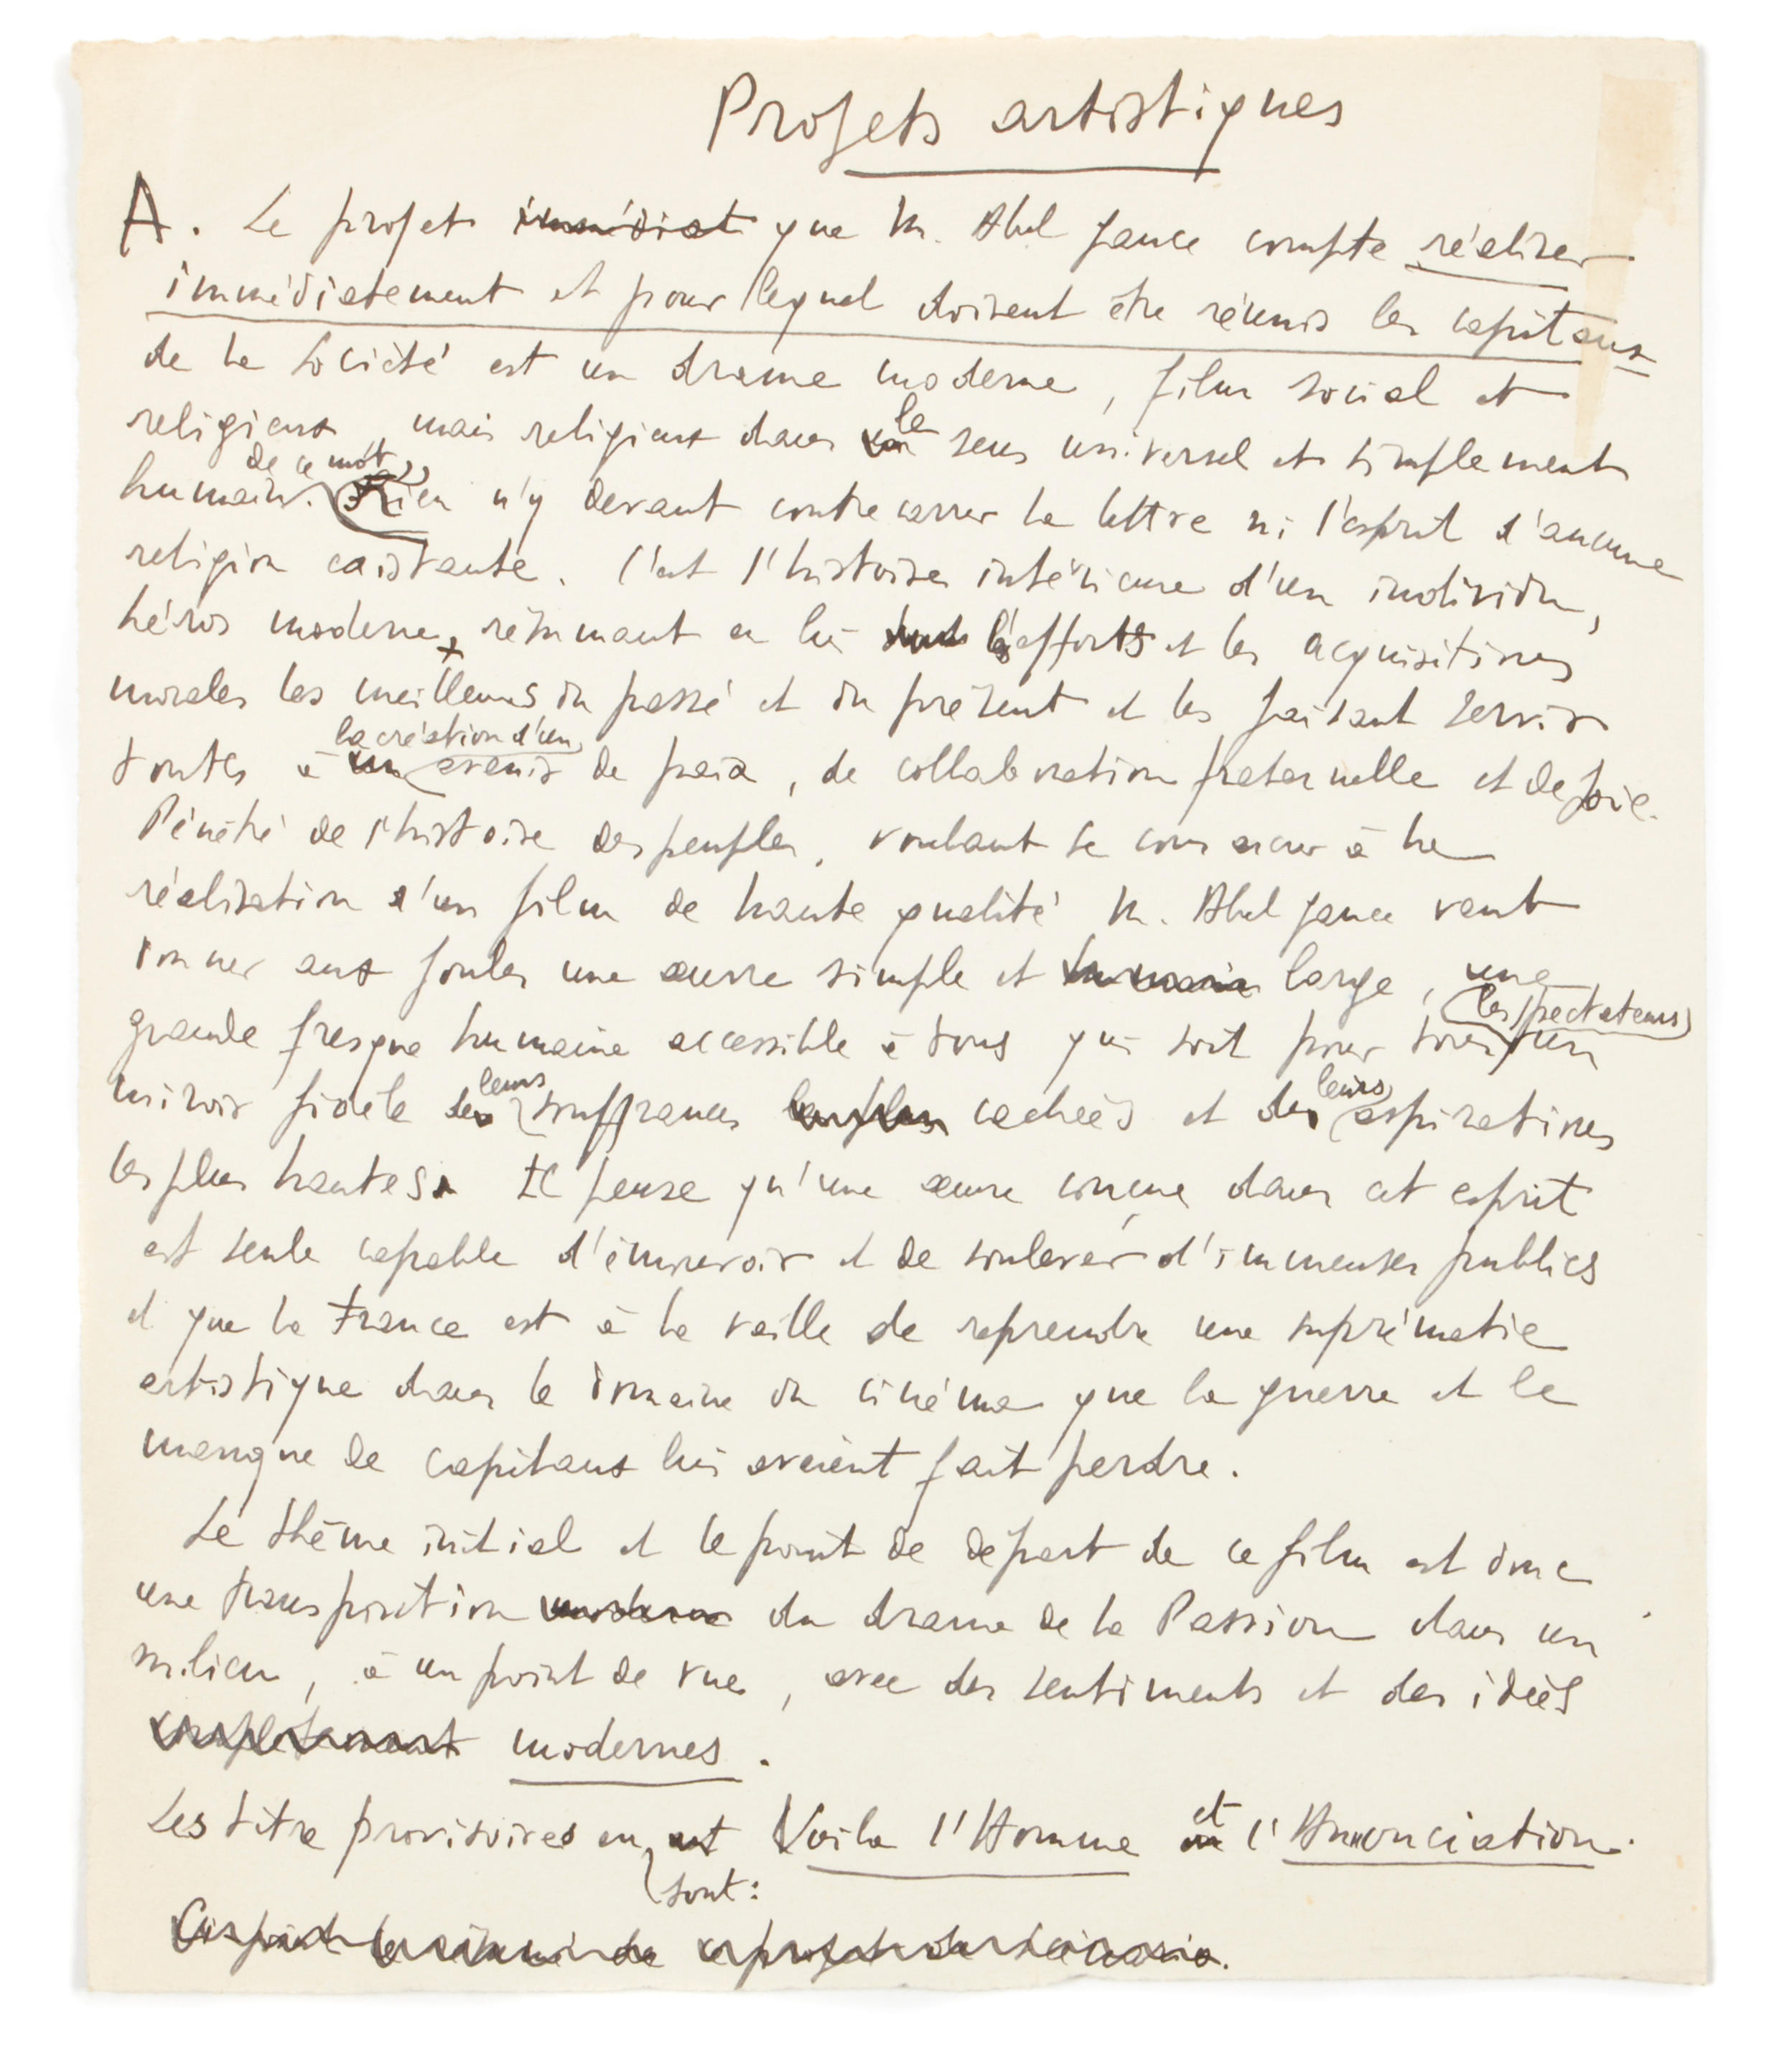 Projets artistiques
A. Le projet immédiat que M. Abel Gance compte réaliser
immédiatement et pour lequel doivent être réunis les capitaux
de la Société est un drame moderne, film social et
religieux, mais religieux dans le sens universel et simplement
de ce mot,
humain. Rien n'y devant contrecarrer la lettre ni l'esprit d'aucune
religion existante. C'est l'histoire intérieure d'un individu,
héros moderne, résumant en lui les efforts et les acquisitions
morales les meilleures du passé et du présent et les faisant servir
la création d'un
toutes à un avenir de paix, de collaboration fraternelle et de joie.
Pénétré de l'histoire des peuples, voulant se consacrer à la
réalisation d'un film de haute qualité M. Abel Gance veut
donner aux foules une œuvre simple et humaine large, une
les spectateurs
grande fresque humaine accessible à tous qui soit pour tous un
leurs leurs
miroir fidèle des souffrances les plus cachées et des aspirations
les plus hautes. Il pense qu'une œuvre conçue dans cet esprit
est seule capable d'émouvoir et de soulever d'immenses publics
et que la France est à la veille de reprendre une suprématie
artistique dans le domaine du cinéma que la guerre et le
manque de capitaux lui avaient fait perdre.
Le thème initial et le point de départ de ce film est donc
une transposition moderne du drame de la Passion dans un
milieu, à un point de vue, avec des sentiments et des idées
complètement modernes.
et
Les titre provisoires en est Voila l'Homme ou l'Annonciation.
sont: